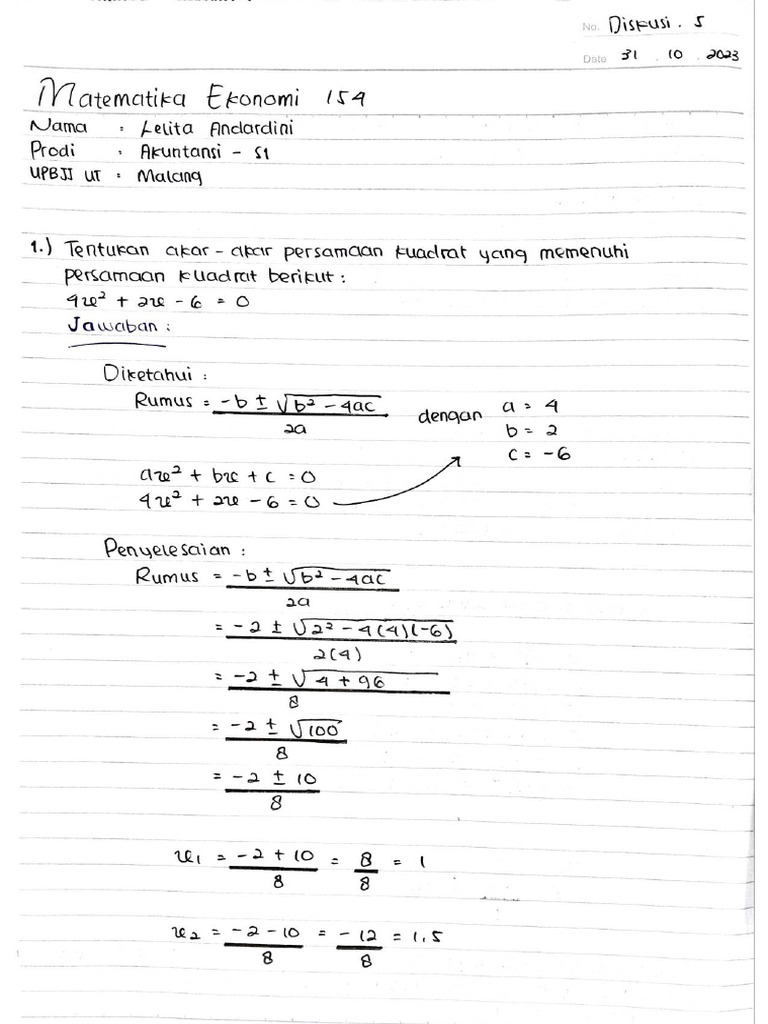 No. Diskusi . 5
Date 31 . 10 . 2023
Matematika Ekonomi 154
Nama : Lelita Andardini
Prodi : Akuntansi - S1
UPBJJ UT : Malang
1.) Tentukan akar - akar persamaan kuadrat yang memenuhi
persamaan kuadrat berikut :
4x² + 2x - 6 = 0
Jawaban :
Diketahui :
Rumus = -b ± √b² - 4ac / 2a dengan a = 4
b = 2
c = -6
ax² + bx + c = 0
4x² + 2x - 6 = 0
Penyelesaian :
Rumus = -b ± √b² - 4ac / 2a
= -2 ± √2² - 4(4)(-6) / 2(4)
= -2 ± √4 + 96 / 8
= -2 ± √100 / 8
= -2 ± 10 / 8
x₁ = -2 + 10 / 8 = 8 / 8 = 1
x₂ = -2 - 10 / 8 = -12 / 8 = 1,5